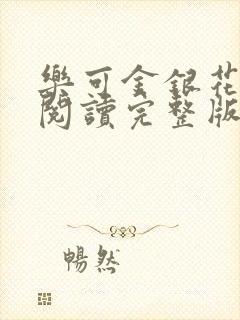 樂可金銀花
閱讀完整版
暢然